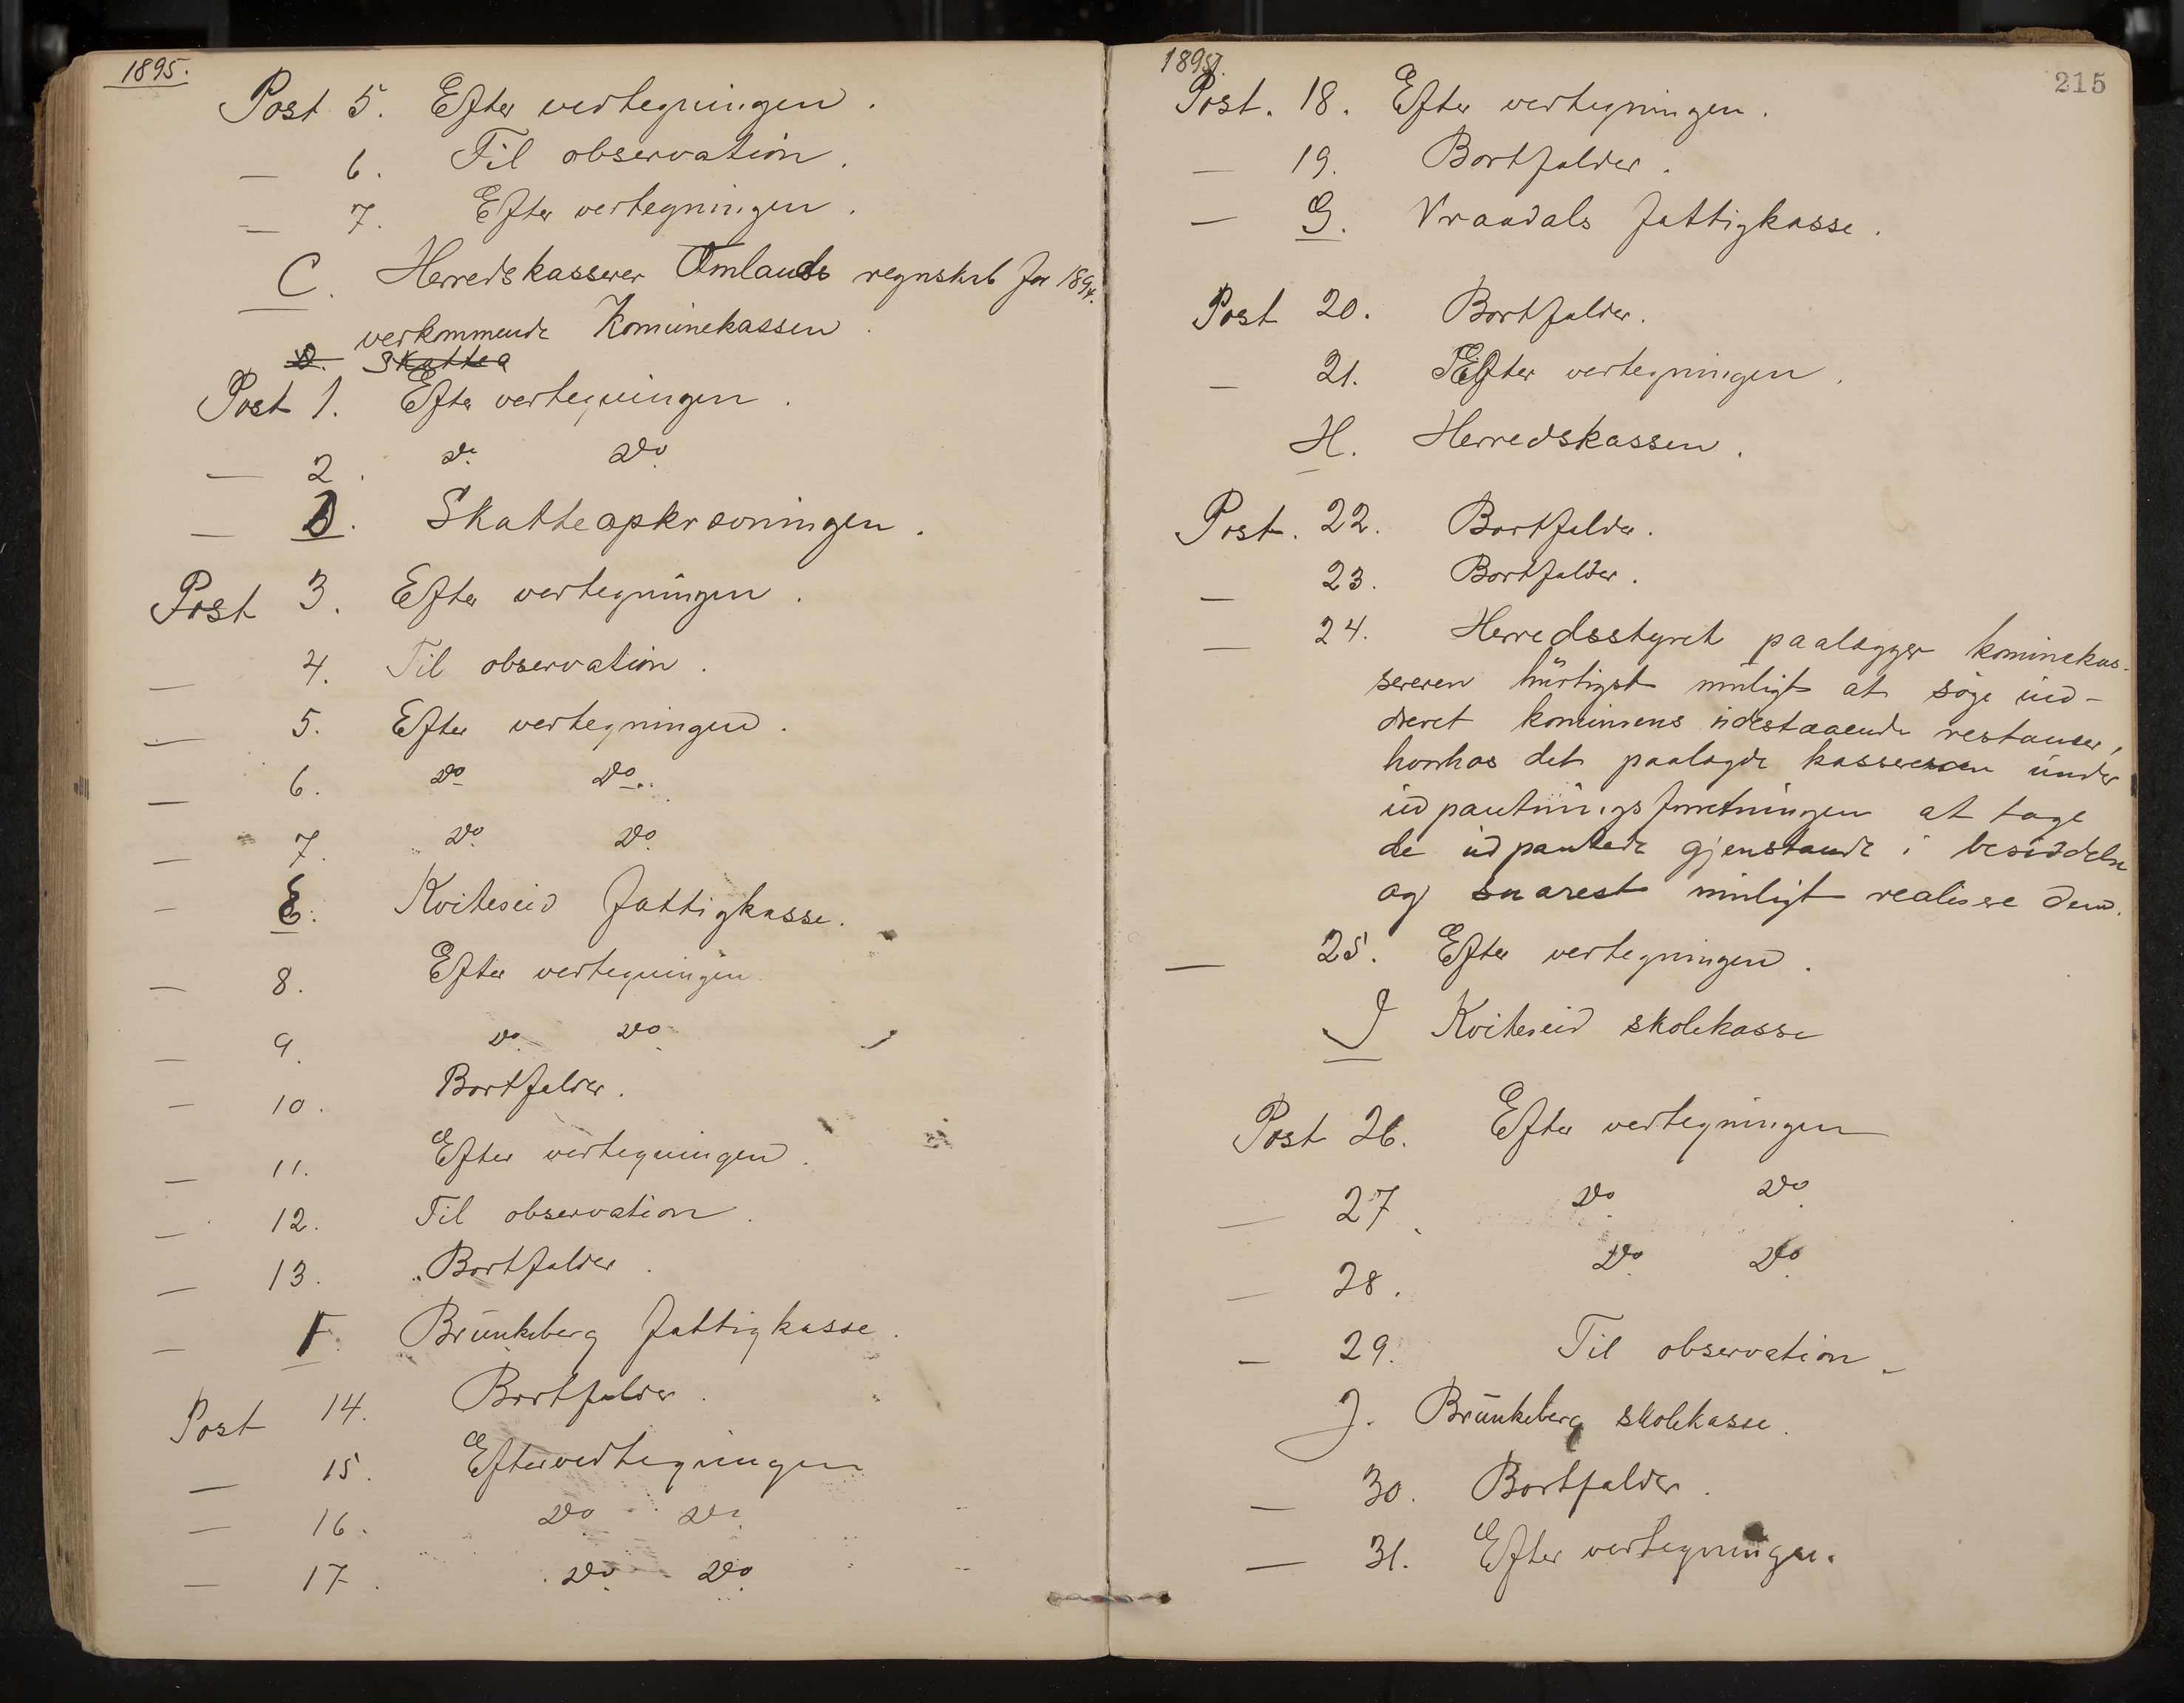 1895.
Post 5. Efter vedtegningen.
— 6. Til observation.
— 7. Efter vedtegningen.
C. Herredskasserer Omlands regnskab for 1894.
vedkommende Komünekassen.
D. Skattea
Post 1. Efter vedtegningen.
— 2. do do
— D. Skatteopkrævningen.
Post 3. Efter vedtegningen.
— 4. Til observation.
— 5. Efter vedtegningen.
— 6. do do.
— 7. do do
— E. Kviteseid fattigkasse.
— 8. Efter vedtegningen
— 9. do do
— 10. Bortfalder.
— 11. Efter vedtegningen.
— 12. Til observation.
— 13. Bortfalder.
— F. Brünkeberg fattigkasse.
Post 14. Bortfalder.
— 15. Efter vedtegningen
— 16. do do
— 17. do do
1895.
215
Post. 18. Efter vedtegningen.
— 19. Bortfalder.
— G. Vraadals fattigkasse.
Post 20. Bortfalder.
— 21. Efter vedtegningen.
H. Herredskassen.
Post. 22. Bortfalder.
— 23. Bortfalder.
— 24. Herredsstyret paalægger kominekas-
sereren hürtigst müligt at søge ind-
drevet kominens üdestaaende restanser,
hvorhos det paalagde kassereren ünder
üdpantningsforretningen at tage
de üdpantede gjenstande i besiddelse
og snarest müligt realisere dem.
— 25. Efter vedtegningen.
I Kviteseid skolekasse
Post 26. Efter vedtegningen
— 27. do do
— 28. do do
— 29. Til observation.
J. Brünkeberg skolekasse.
— 30. Bortfalder.
— 31. Efter vedtegningen.